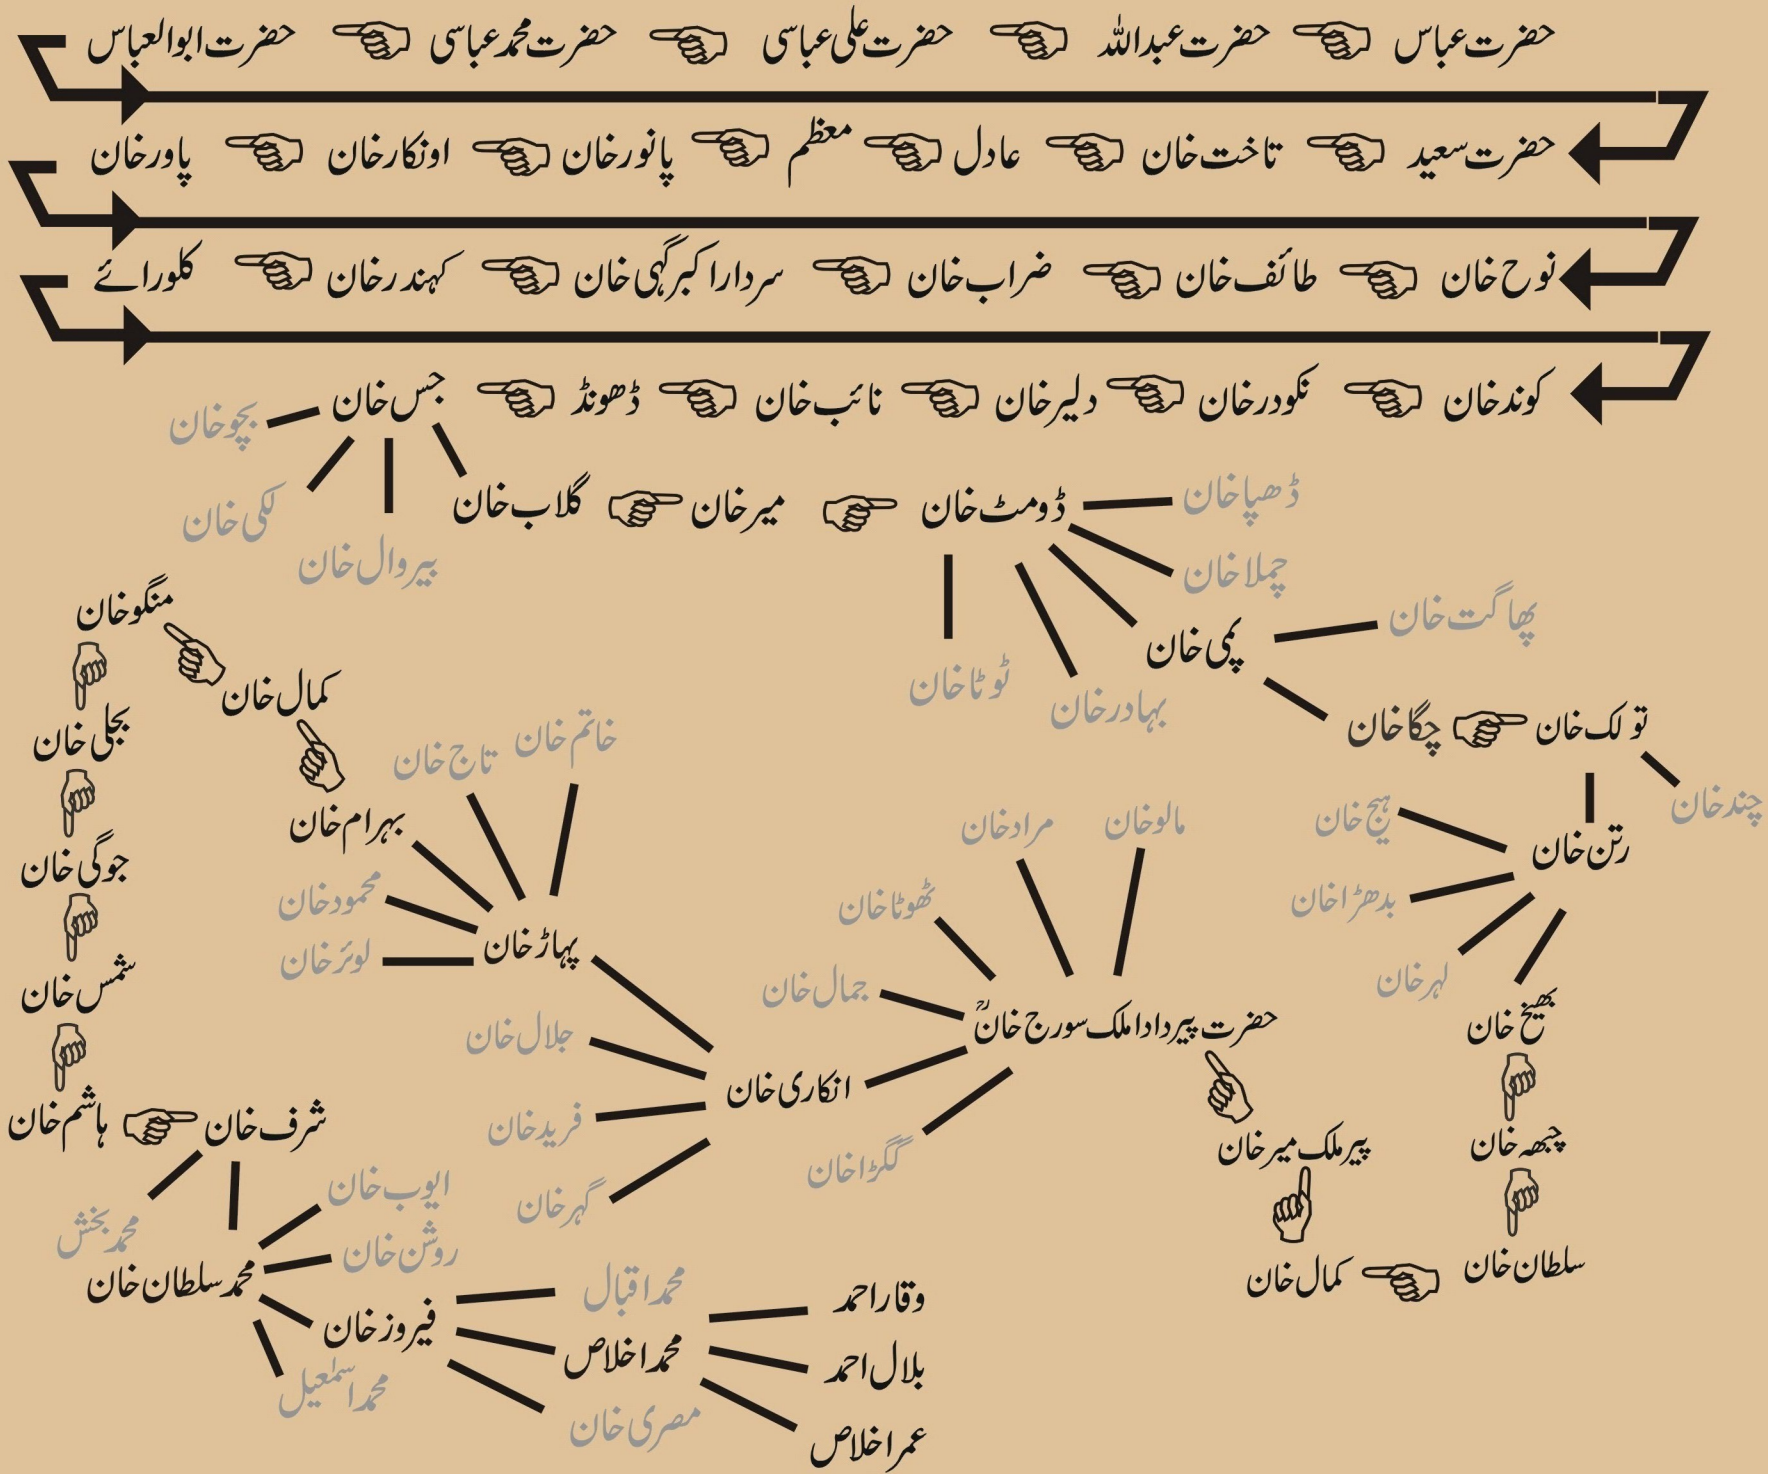 حضرت عباس حضرت عبداللہ حضرت علی عباسی حضرت محمد عباسی حضرت ابوالعباس
حضرت سعید تاخت خان عادل معظم پانور خان اونکار خان پاور خان
نوح خان طائف خان ضراب خان سردار اکبر گہی خان کہندر خان کلورائے
کوند خان نکودر خان دلیر خان نائب خان ڈھونڈ جس خان
بچو خان
لکی خان
بیروال خان
گلاب خان میر خان ڈومٹ خان
ڈھپا خان
چملا خان
پمی خان
بہادر خان
ٹوٹا خان
پھاگت خان
چگا خان تولک خان
چند خان
رتن خان
ہیج خان
بدھڑا خان
لہر خان
بھیخ خان
چبھہ خان
سلطان خان
کمال خان
پیر ملک میر خان
حضرت پیر دادا ملک سورج خانؒ
مالو خان
مراد خان
ٹھوٹا خان
جمال خان
گگڑا خان
انکاری خان
جلال خان
فرید خان
گہر خان
پہاڑ خان
خاتم خان
تاج خان
محمود خان
لوئر خان
بہرام خان
کمال خان
منگو خان
بجلی خان
جوگی خان
شمس خان
ہاشم خان شرف خان
محمد بخش
محمد سلطان خان
ایوب خان
روشن خان
فیروز خان
محمد اسمٰعیل
محمد اقبال
محمد اخلاص
مصری خان
وقار احمد
بلال احمد
عمر اخلاص